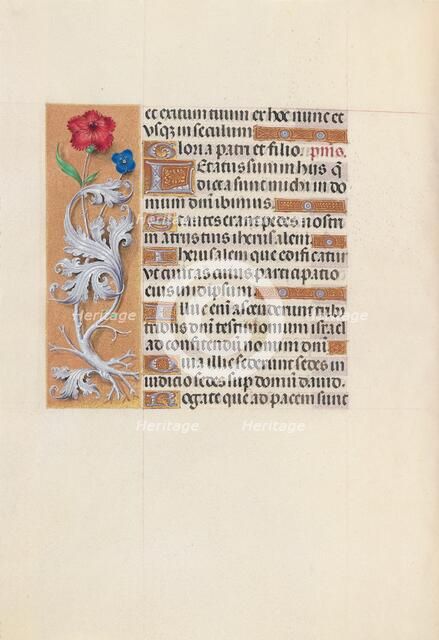 et exitum tuum ex hoc nunc et
usq̨ in seculum
Gloria patri et filio. p̄ms.
Letatus sum in hus q̄
dicta sunt michi in do
mum dn̄i ibimus.
Stantes erant pedes nostri
in atrus tuis iherusalem.
Iherusalem que edificatur
ut ciuitas cuius participatio
eius in idipsum.
Illuc eni᷑ ascenderunt tribꝰ
tribus dn̄i testimonium israel
ad confitendum nomini dn̄i.
Quia illic sederunt sedes in
iudicio sedes sup domū dauid.
Rogate que ad pacem sunt
Heritage Heritage
Heritage Heritage
Heritage Heritage